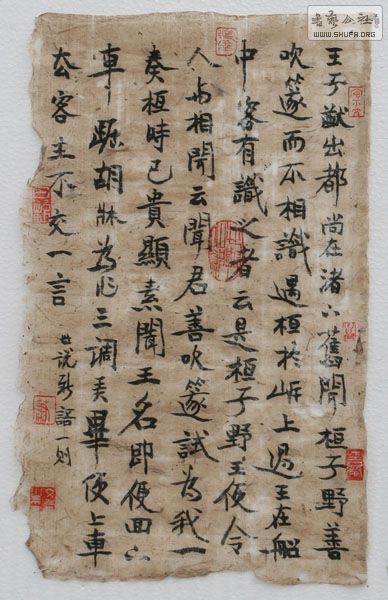 王子猷出都尚在渚下舊聞桓子野善
吹篴而不相識遇桓於岸上過王在船
中客有識之者云是桓子野王便令
人与相聞云聞君善吹篴試為我一
奏桓時已貴顯素聞王名即便回下
車踞胡牀為作三調弄畢便上車
去客主不交一言
世说新語一则
WWW.SHUFA.ORG